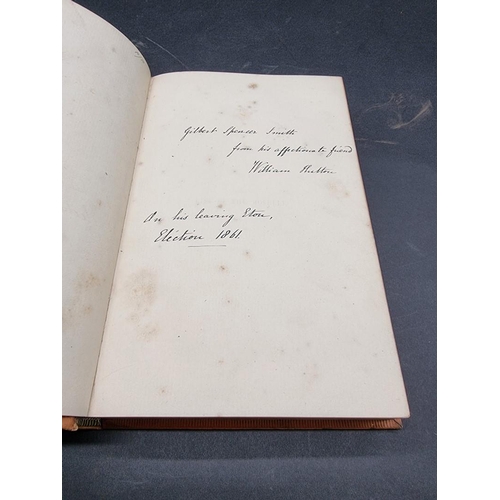 Gilbert Spencer Smith
from his affectionate friend
William
On his leaving Eton,
Election 1861.